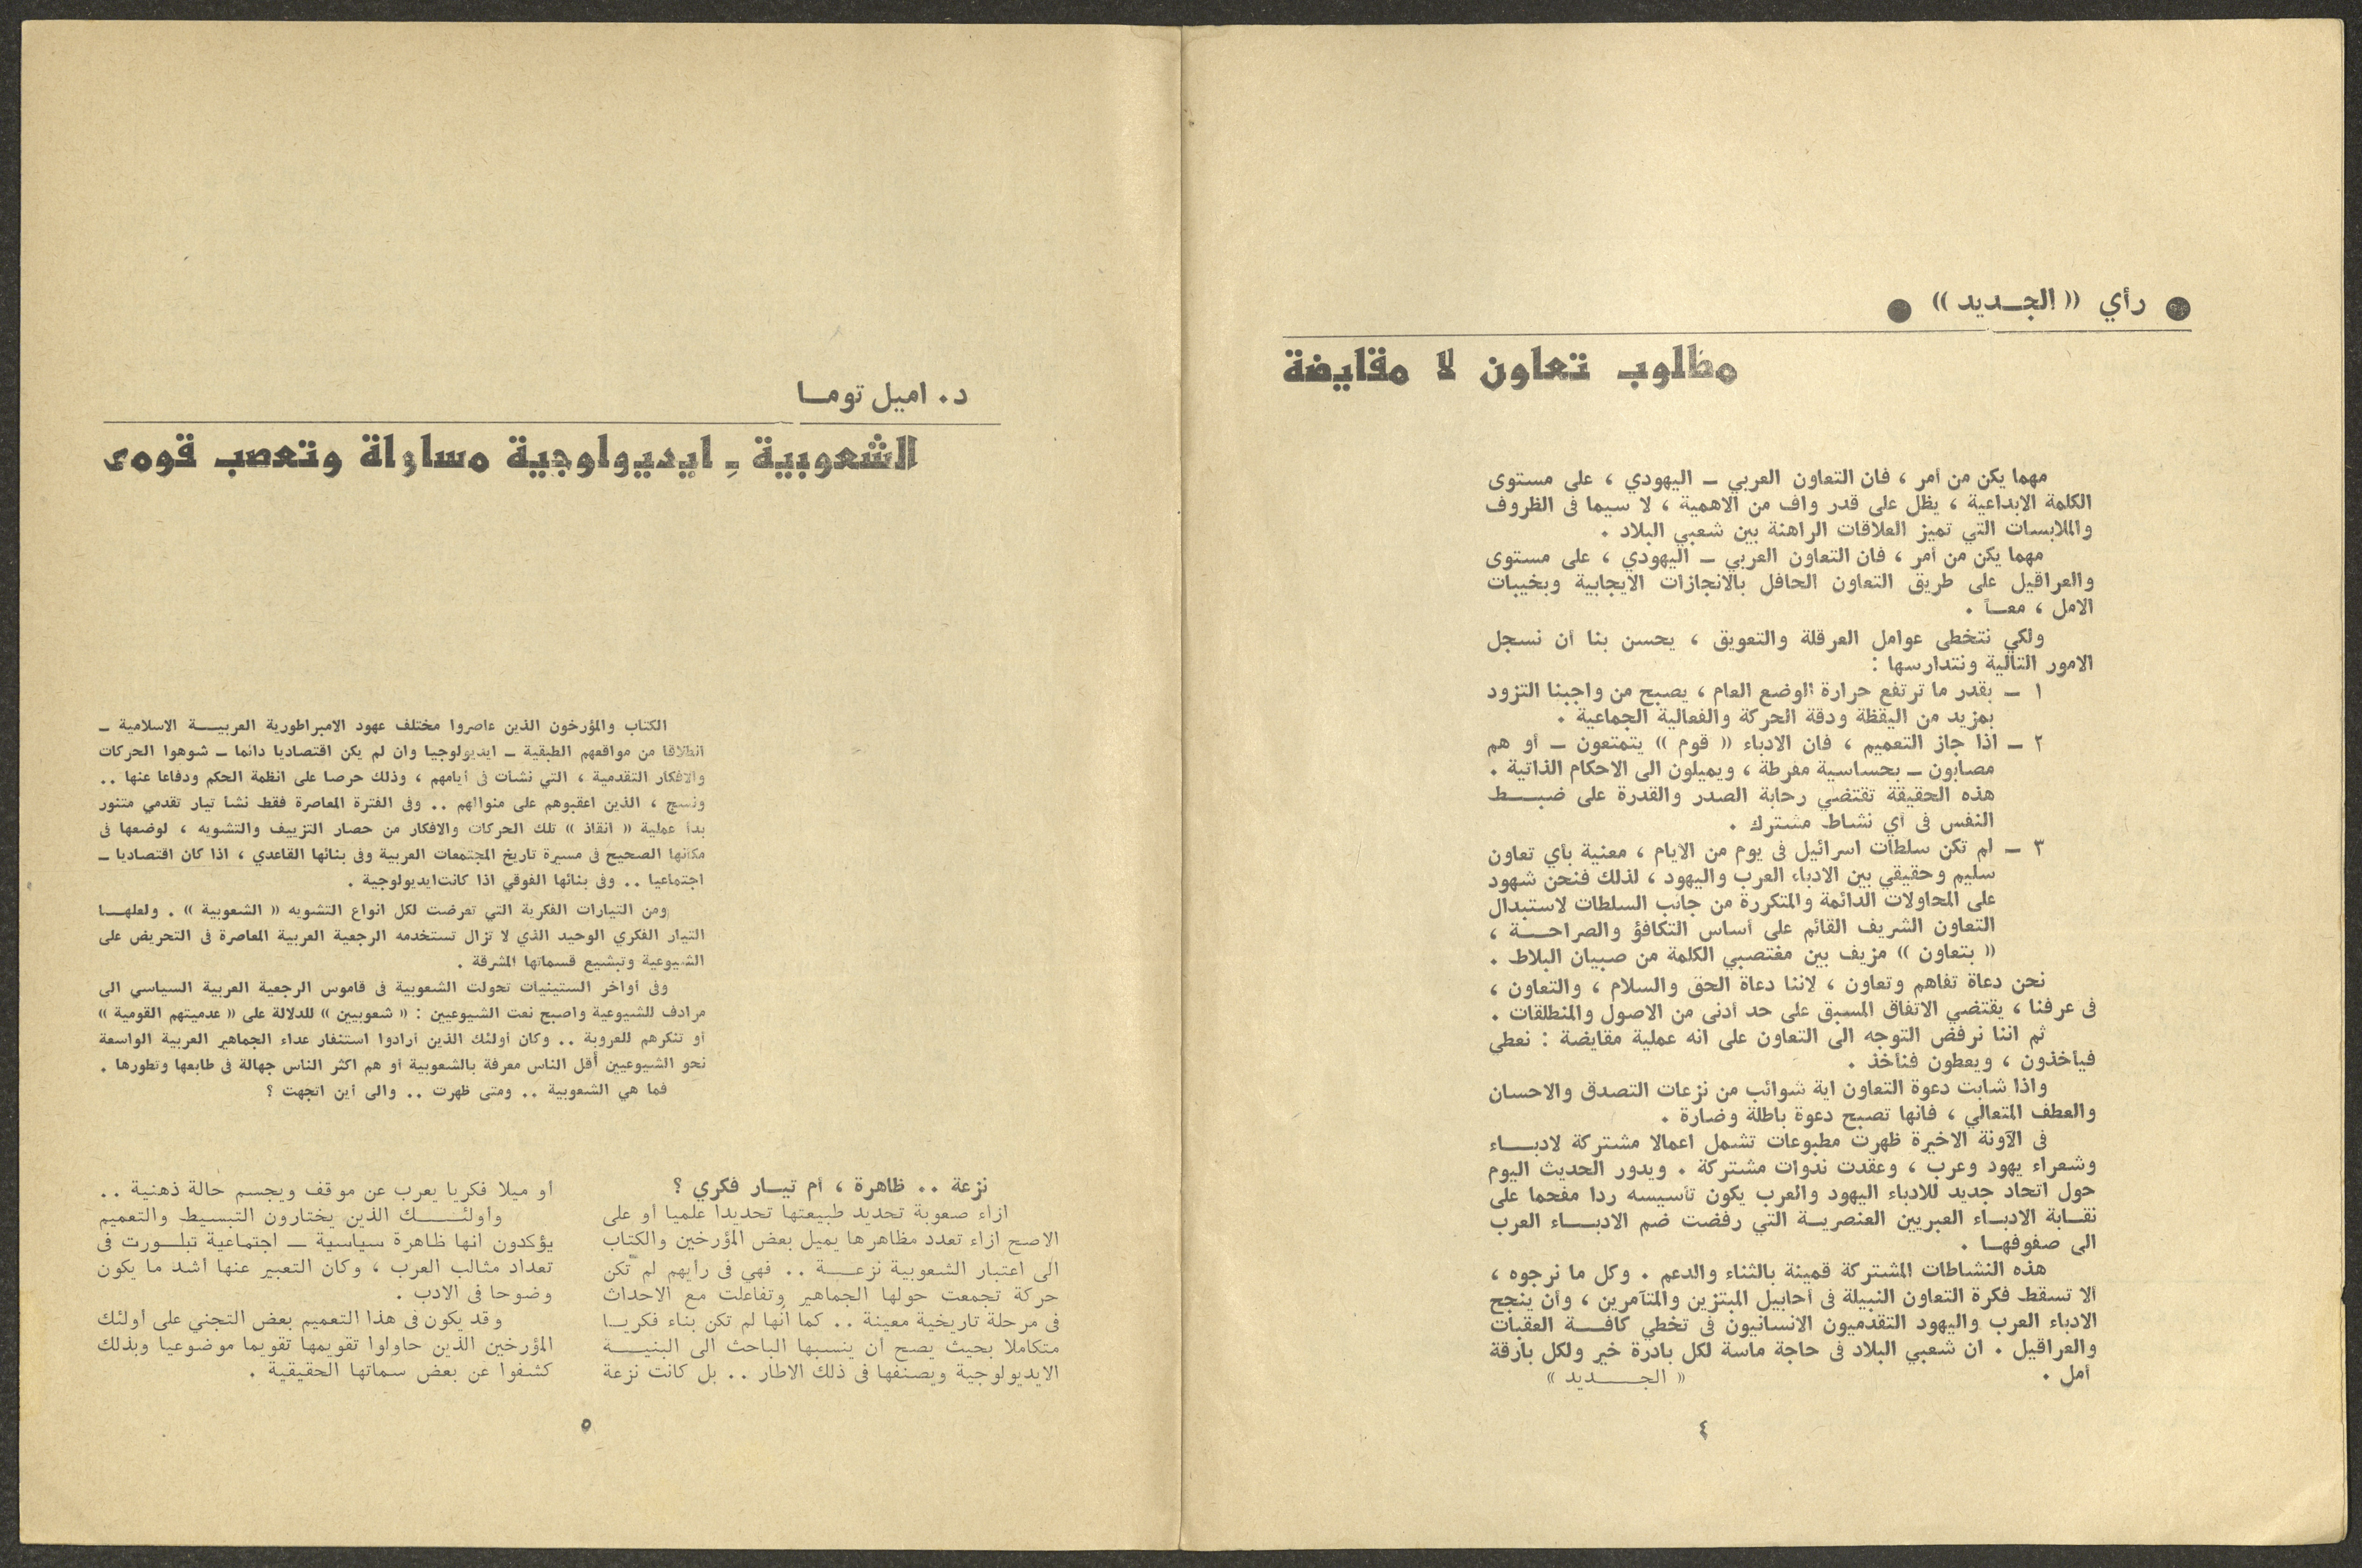 ● رأي « الجـديد » ●
مطلوب تعاون لا مقايضة
مهما يكن من أمر ، فان التعاون العربي ــ اليهودي ، على مستوى
الكلمة الابداعية ، يظل على قدر واف من الاهمية ، لا سيما فى الظروف
والملابسات التي تميز العلاقات الراهنة بين شعبي البلاد .
مهما يكن من أمر ، فان التعاون العربي ــ اليهودي ، على مستوى
والعراقيل على طريق التعاون الحافل بالانجازات الايجابية وبخيبات
الامل ، معـاً .
ولكي نتخطى عوامل العرقلة والتعويق ، يحسن بنا أن نسجل
الامور التالية ونتدارسها :
١ ــ بقدر ما ترتفع حرارة الوضع العام ، يصبح من واجبنا التزود
بمزيد من اليقظة ودقة الحركة والفعالية الجماعية .
٢ ــ اذا جاز التعميم ، فان الادباء « قوم » يتمتعون ــ أو هم
مصابون ــ بحساسية مفرطة ، ويميلون الى الاحكام الذاتية .
هذه الحقيقة تقتضي رحابة الصدر والقدرة على ضبــط
النفس فى أي نشاط مشترك .
٣ ــ لم تكن سلطات اسرائيل فى يوم من الايام ، معنية بأي تعاون
سليم وحقيقي بين الادباء العرب واليهود ، لذلك فنحن شهود
على المحاولات الدائمة والمتكررة من جانب السلطات لاستبدال
التعاون الشريف القائم على أساس التكافؤ والصراحــة ،
« بتعاون » مزيف بين مغتصبي الكلمة من صبيان البلاط .
نحن دعاة تفاهم وتعاون ، لاننا دعاة الحق والسلام ، والتعاون ،
فى عرفنا ، يقتضي الاتفاق المسبق على حد أدنى من الاصول والمنطلقات .
ثم اننا نرفض التوجه الى التعاون على انه عملية مقايضة : نعطي
فيأخذون ، ويعطون فنأخذ .
واذا شابت دعوة التعاون اية شوائب من نزعات التصدق والاحسان
والعطف المتعالي ، فانها تصبح دعوة باطلة وضارة .
فى الآونة الاخيرة ظهرت مطبوعات تشمل اعمالا مشتركة لادبــاء
وشعراء يهود وعرب ، وعقدت ندوات مشتركة . ويدور الحديث اليوم
حول اتحاد جديد للادباء اليهود والعرب يكون تأسيسه ردا مفحما على
نقـابة الادبـاء العبريين العنصريـة التي رفضت ضم الادبــاء العرب
الى صفوفهـا .
هذه النشاطات المشتركة قمينة بالثناء والدعم . وكل ما نرجوه ،
ألا تسقط فكرة التعاون النبيلة فى أحابيل المبتزين والمتآمرين ، وأن ينجح
الادباء العرب واليهود التقدميون الانسانيون فى تخطي كافــة العقبات
والعراقيل . ان شعبي البلاد فى حاجة ماسة لكل بادرة خير ولكل بارقة
أمل .
« الجـــديد »
٤
د. اميل تومـا
الشعوبية ـ ايديولوجية مساواة وتعصب قومى
الكتاب والمؤرخون الذين عاصروا مختلف عهود الامبراطورية العربيــة الاسلامية ــ
انطلاقا من مواقعهم الطبقية ــ ايديولوجيا وان لم يكن اقتصاديا دائما ــ شوهوا الحركات
والافكار التقدمية ، التي نشأت فى أيامهم ، وذلك حرصا على انظمة الحكم ودفاعا عنها ..
ونسج ، الذين اعقبوهم على منوالهم .. وفى الفترة المعاصرة فقط نشأ تيار تقدمي متنور
بدأ عملية « انقاذ » تلك الحركات والافكار من حصار التزييف والتشويه ، لوضعها فى
مكانها الصحيح فى مسيرة تاريخ المجتمعات العربية وفى بنائها القاعدي ، اذا كان اقتصاديا ــ
اجتماعيا .. وفى بنائها الفوقي اذا كانت ايديولوجية .
ومن التيارات الفكرية التي تعرضت لكل انواع التشويه « الشعوبية » . ولعلهـا
التيار الفكري الوحيد الذي لا تزال تستخدمه الرجعية العربية المعاصرة فى التحريض على
الشيوعية وتبشيع قسماتها المشرقة .
وفى أواخر الستينيات تحولت الشعوبية فى قاموس الرجعية العربية السياسي الى
مرادف للشيوعية واصبح نعت الشيوعيين : « شعوبيين » للدلالة على « عدميتهم القومية »
أو تنكرهم للعروبة .. وكان أولئك الذين أرادوا استنفار عداء الجماهير العربية الواسعة
نحو الشيوعيين أقل الناس معرفة بالشعوبية أو هم اكثر الناس جهالة فى طابعها وتطورها .
فما هي الشعوبية .. ومتى ظهرت .. والى أين اتجهت ؟
نزعة .. ظاهرة ، أم تيـار فكري ؟
ازاء صعوبة تحديد طبيعتها تحديدا علميا أو على
الاصح ازاء تعدد مظاهرها يميل بعض المؤرخين والكتاب
الى اعتبار الشعوبية نزعــة .. فهي فى رايهم لم تكن
حركة تجمعت حولها الجماهير وتفاعلت مع الاحداث
فى مرحلة تاريخية معينة .. كما انها لم تكن بناء فكريـا
متكاملا بحيث يصح ان ينسبها الباحث الى البنيــة
الايديولوجية ويصنفها فى ذلك الاطار .. بل كانت نزعة
أو ميلا فكريا يعرب عن موقف ويجسم حالة ذهنية ..
واولئــك الذين يختارون التبسيط والتعميم
يؤكدون انها ظاهرة سياسية ــ اجتماعية تبلـورت فى
تعداد مثالب العرب ، وكان التعبير عنها أشد ما يكون
وضوحا فى الادب .
وقد يكون فى هذا التعميم بعض التجني على أولئك
المؤرخين الذين حاولوا تقويمها تقويما موضوعيا وبذلك
كشفوا عن بعض سماتها الحقيقية .
٥